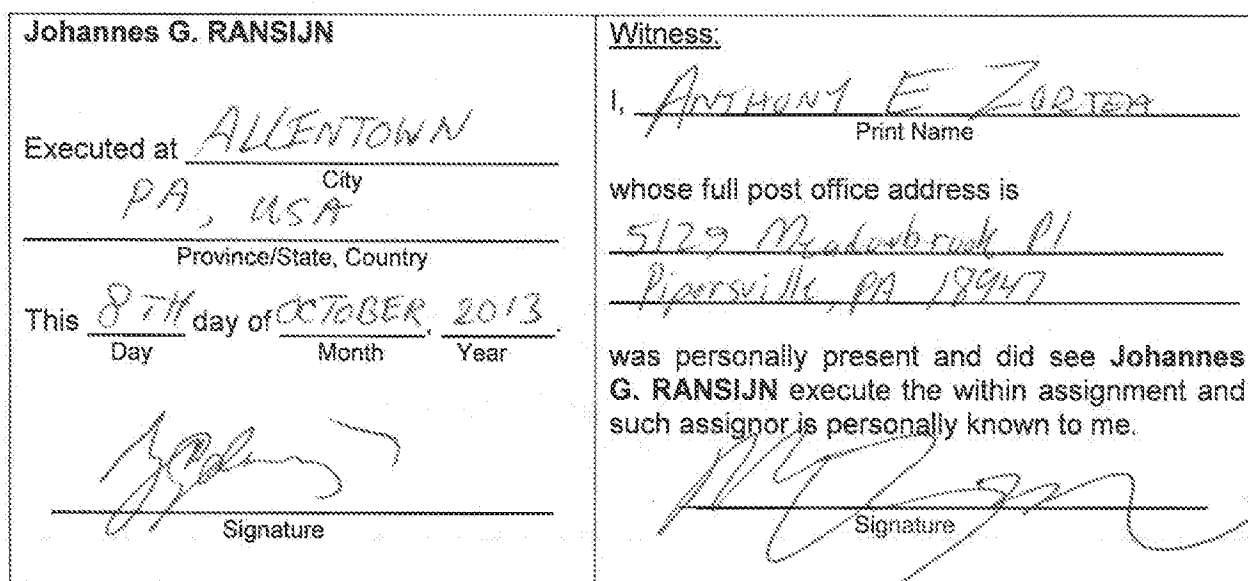 Johannes G. RANSIJN
Executed at ALLENTOWN
City
PA, USA
Province/State, Country
This 8TH day of OCTOBER, 2013.
Day Month Year
Signature
Witness:
I, ANTHONY E ZORTEA
Print Name
whose full post office address is
5129 Meadowbrook Pl
Pipersville, PA 18947
was personally present and did see Johannes
G. RANSIJN execute the within assignment and
such assignor is personally known to me.
Signature